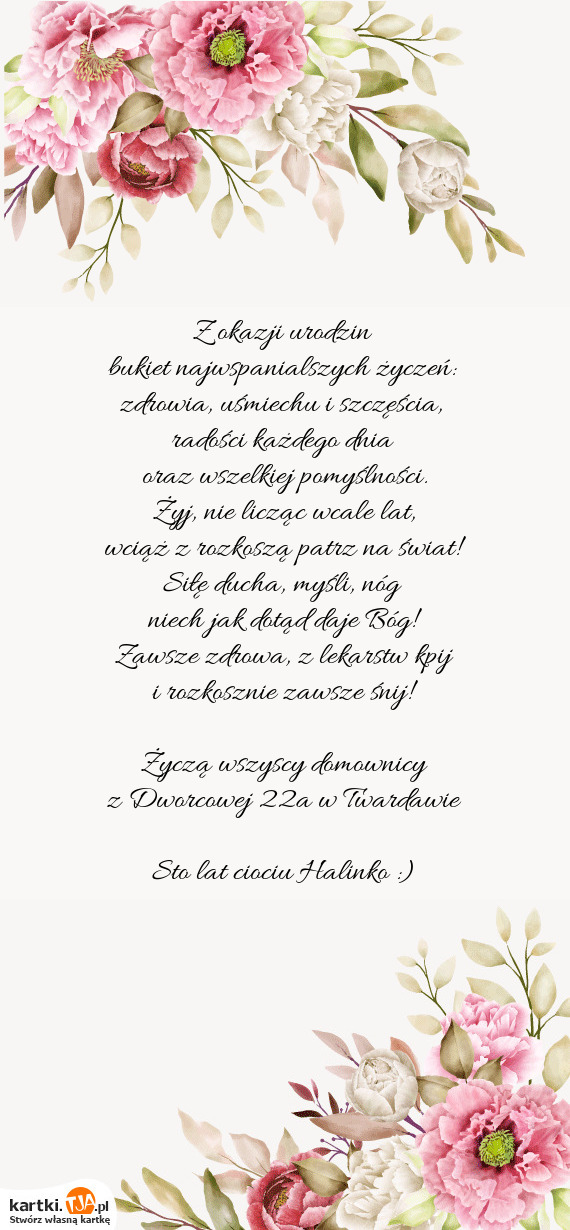 Z okazji urodzin
bukiet najwspanialszych życzeń:
zdrowia, uśmiechu i szczęścia,
radości każdego dnia
oraz wszelkiej pomyślności.
Żyj, nie licząc wcale lat,
wciąż z rozkoszą patrz na świat!
Siłę ducha, myśli, nóg
niech jak dotąd daje Bóg!
Zawsze zdrowa, z lekarstw kpij
i rozkosznie zawsze śnij!
Życzą wszyscy domownicy
z Dworcowej 22a w Twardawie
Sto lat ciociu Halinko :)
kartki.TJA.pl
Stwórz własną kartkę